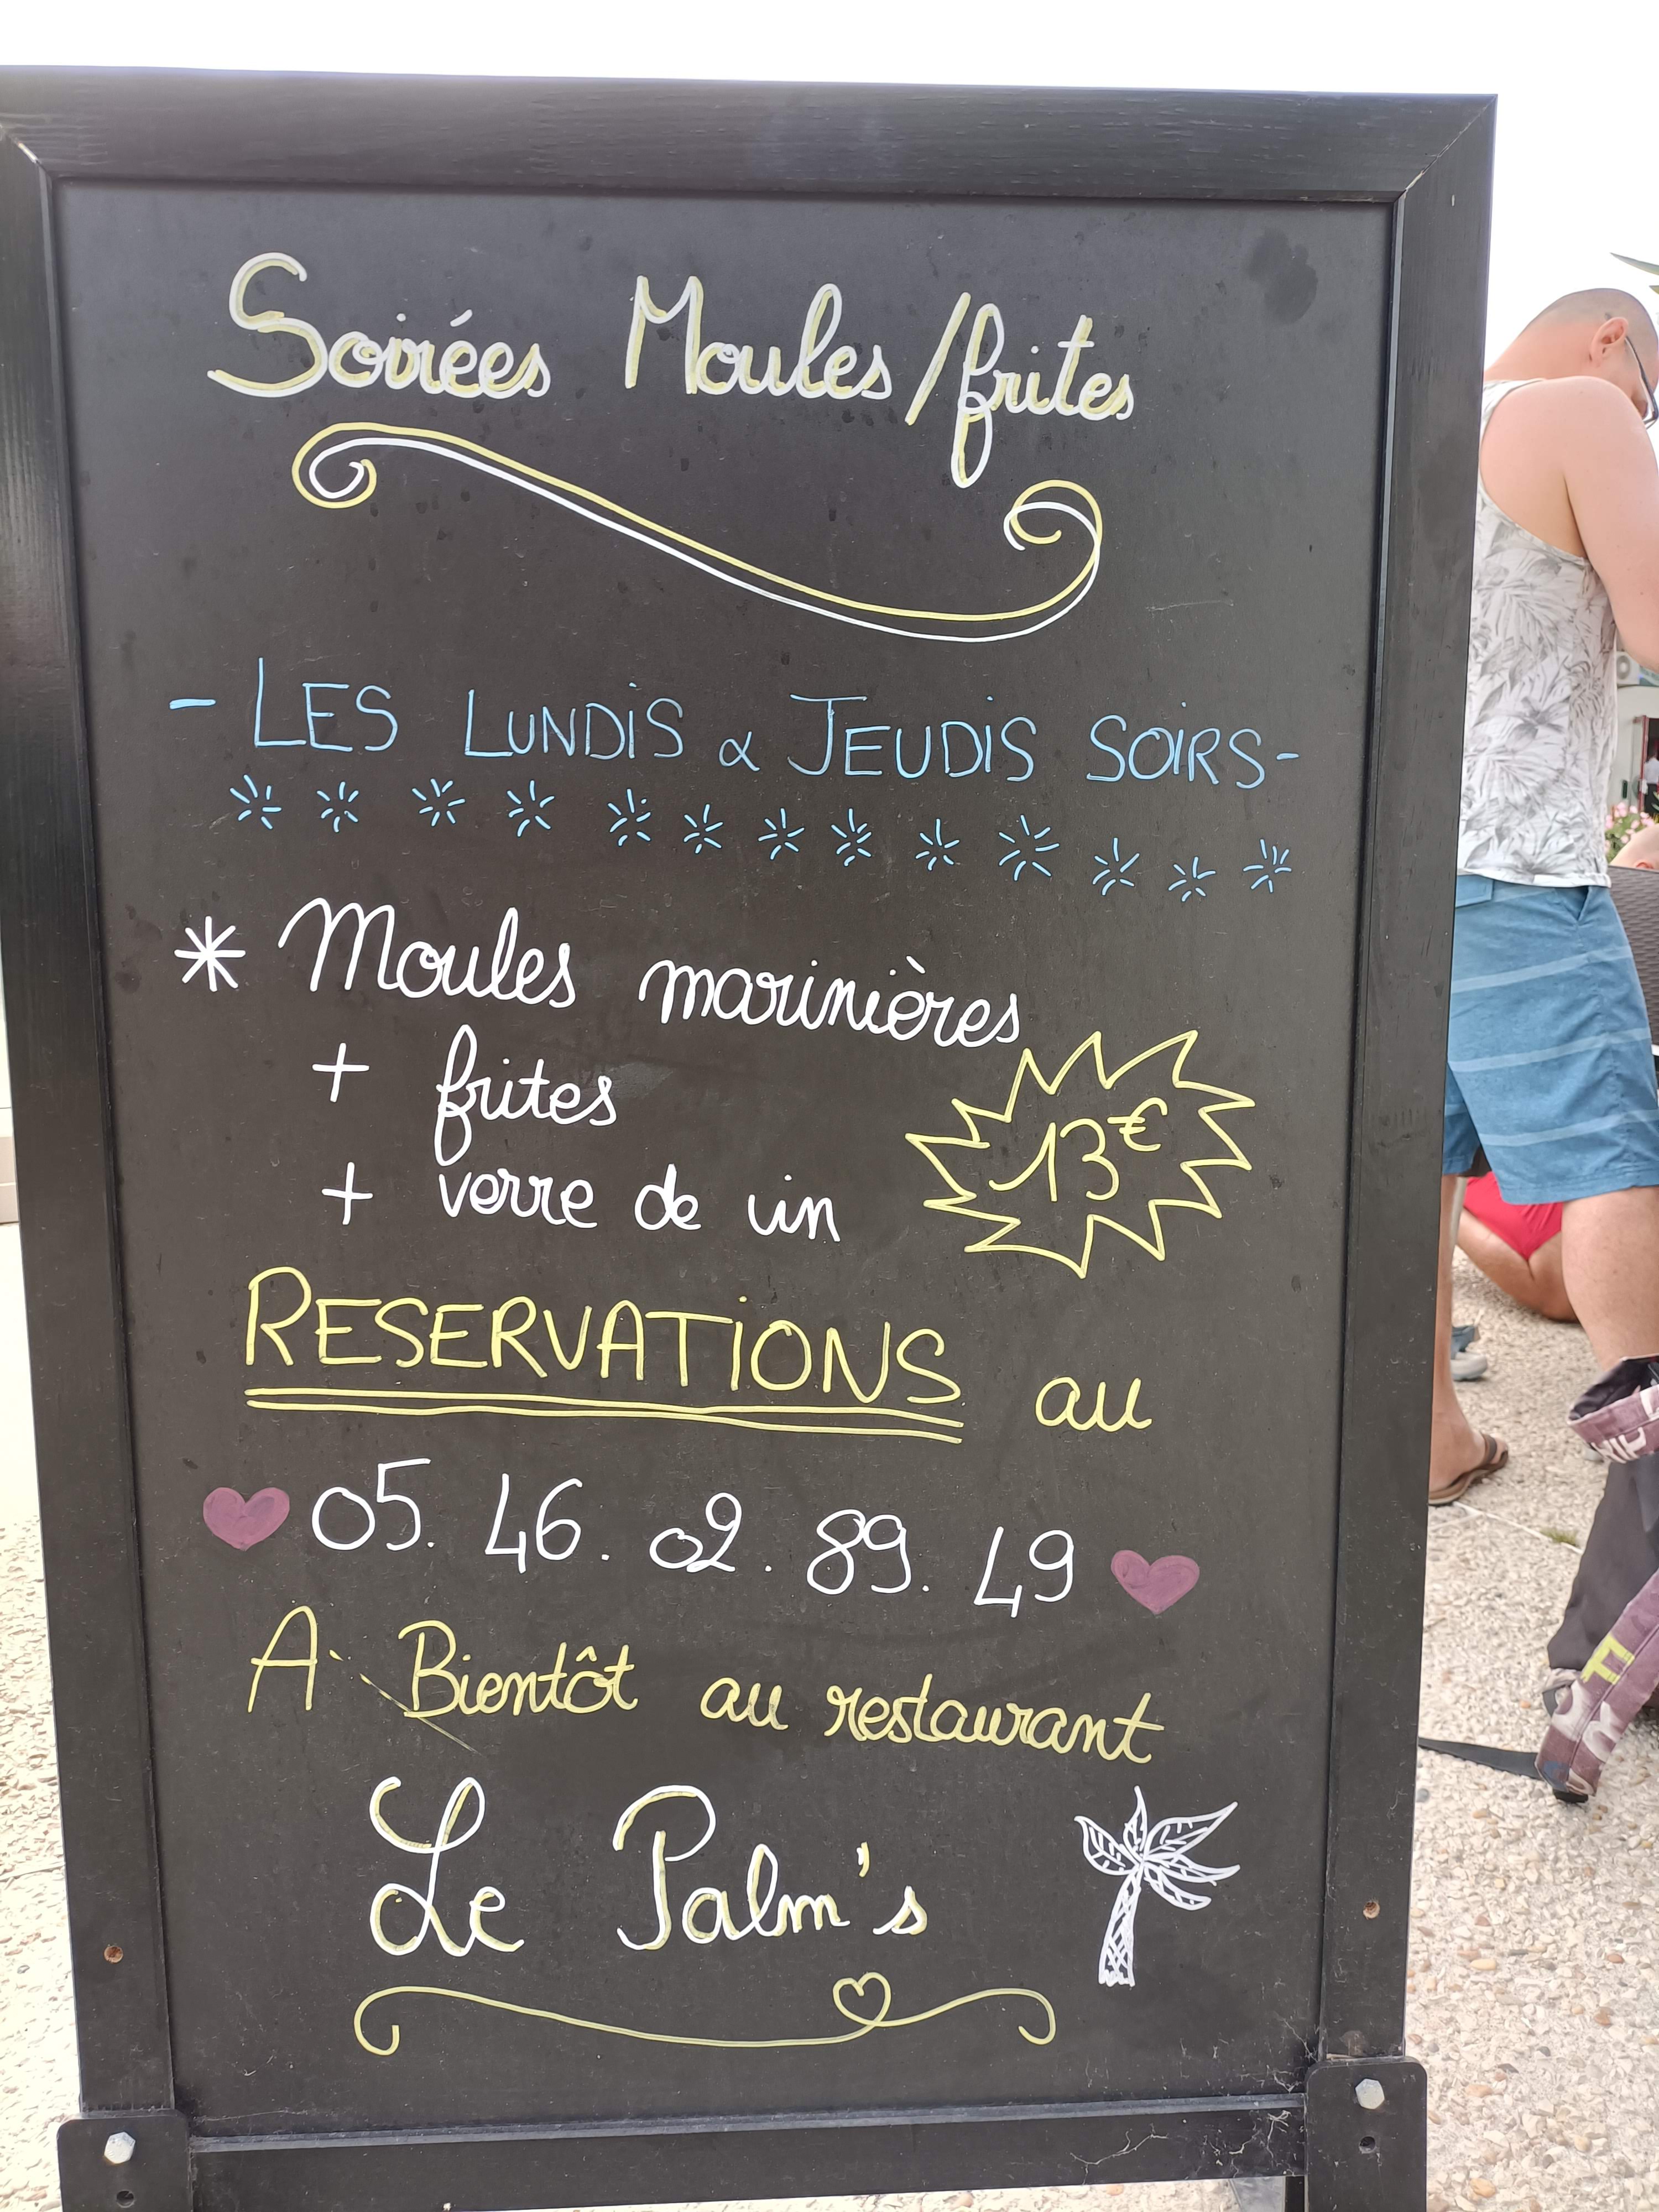 Soirées Moules/frites
- LES LUNDIS & JEUDIS SOIRS -
* Moules marinières
+ frites
+ verre de vin
13€
RESERVATIONS au
05. 46. 02. 89. 49
A Bientôt au restaurant
Le Palm's